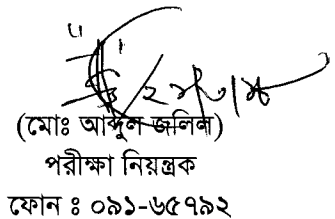 (মোঃ আব্দুল জলিল)
পরীক্ষা নিয়ন্ত্রক
ফোন ঃ ০৯১-৬৫৭৯২